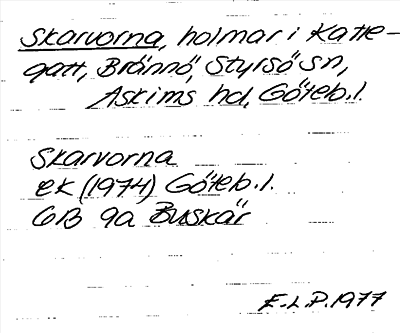 Skarvorna, holmar i Katte-
gatt, Brännö, Styrsö sn,
Askims hd, Göteb. l.
Skarvorna
ek (1974) Göteb. l.
6B 9a Buskär
E.L.P. 1977